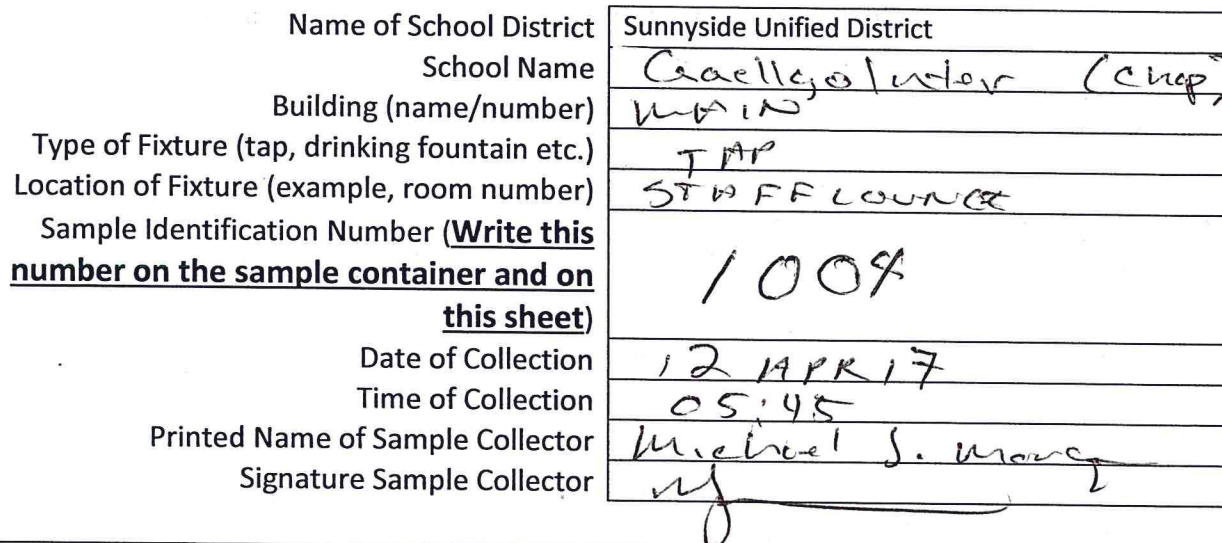 Name of School District Sunnyside Unified District
School Name (Chap)
Building (name/number) MAIN
Type of Fixture (tap, drinking fountain etc.) TAP
Location of Fixture (example, room number) STAFF LOUNGE
Sample Identification Number (Write this
number on the sample container and on
this sheet)
Date of Collection 12 APR 17
Time of Collection 05:45
Printed Name of Sample Collector Michael S.
Signature Sample Collector